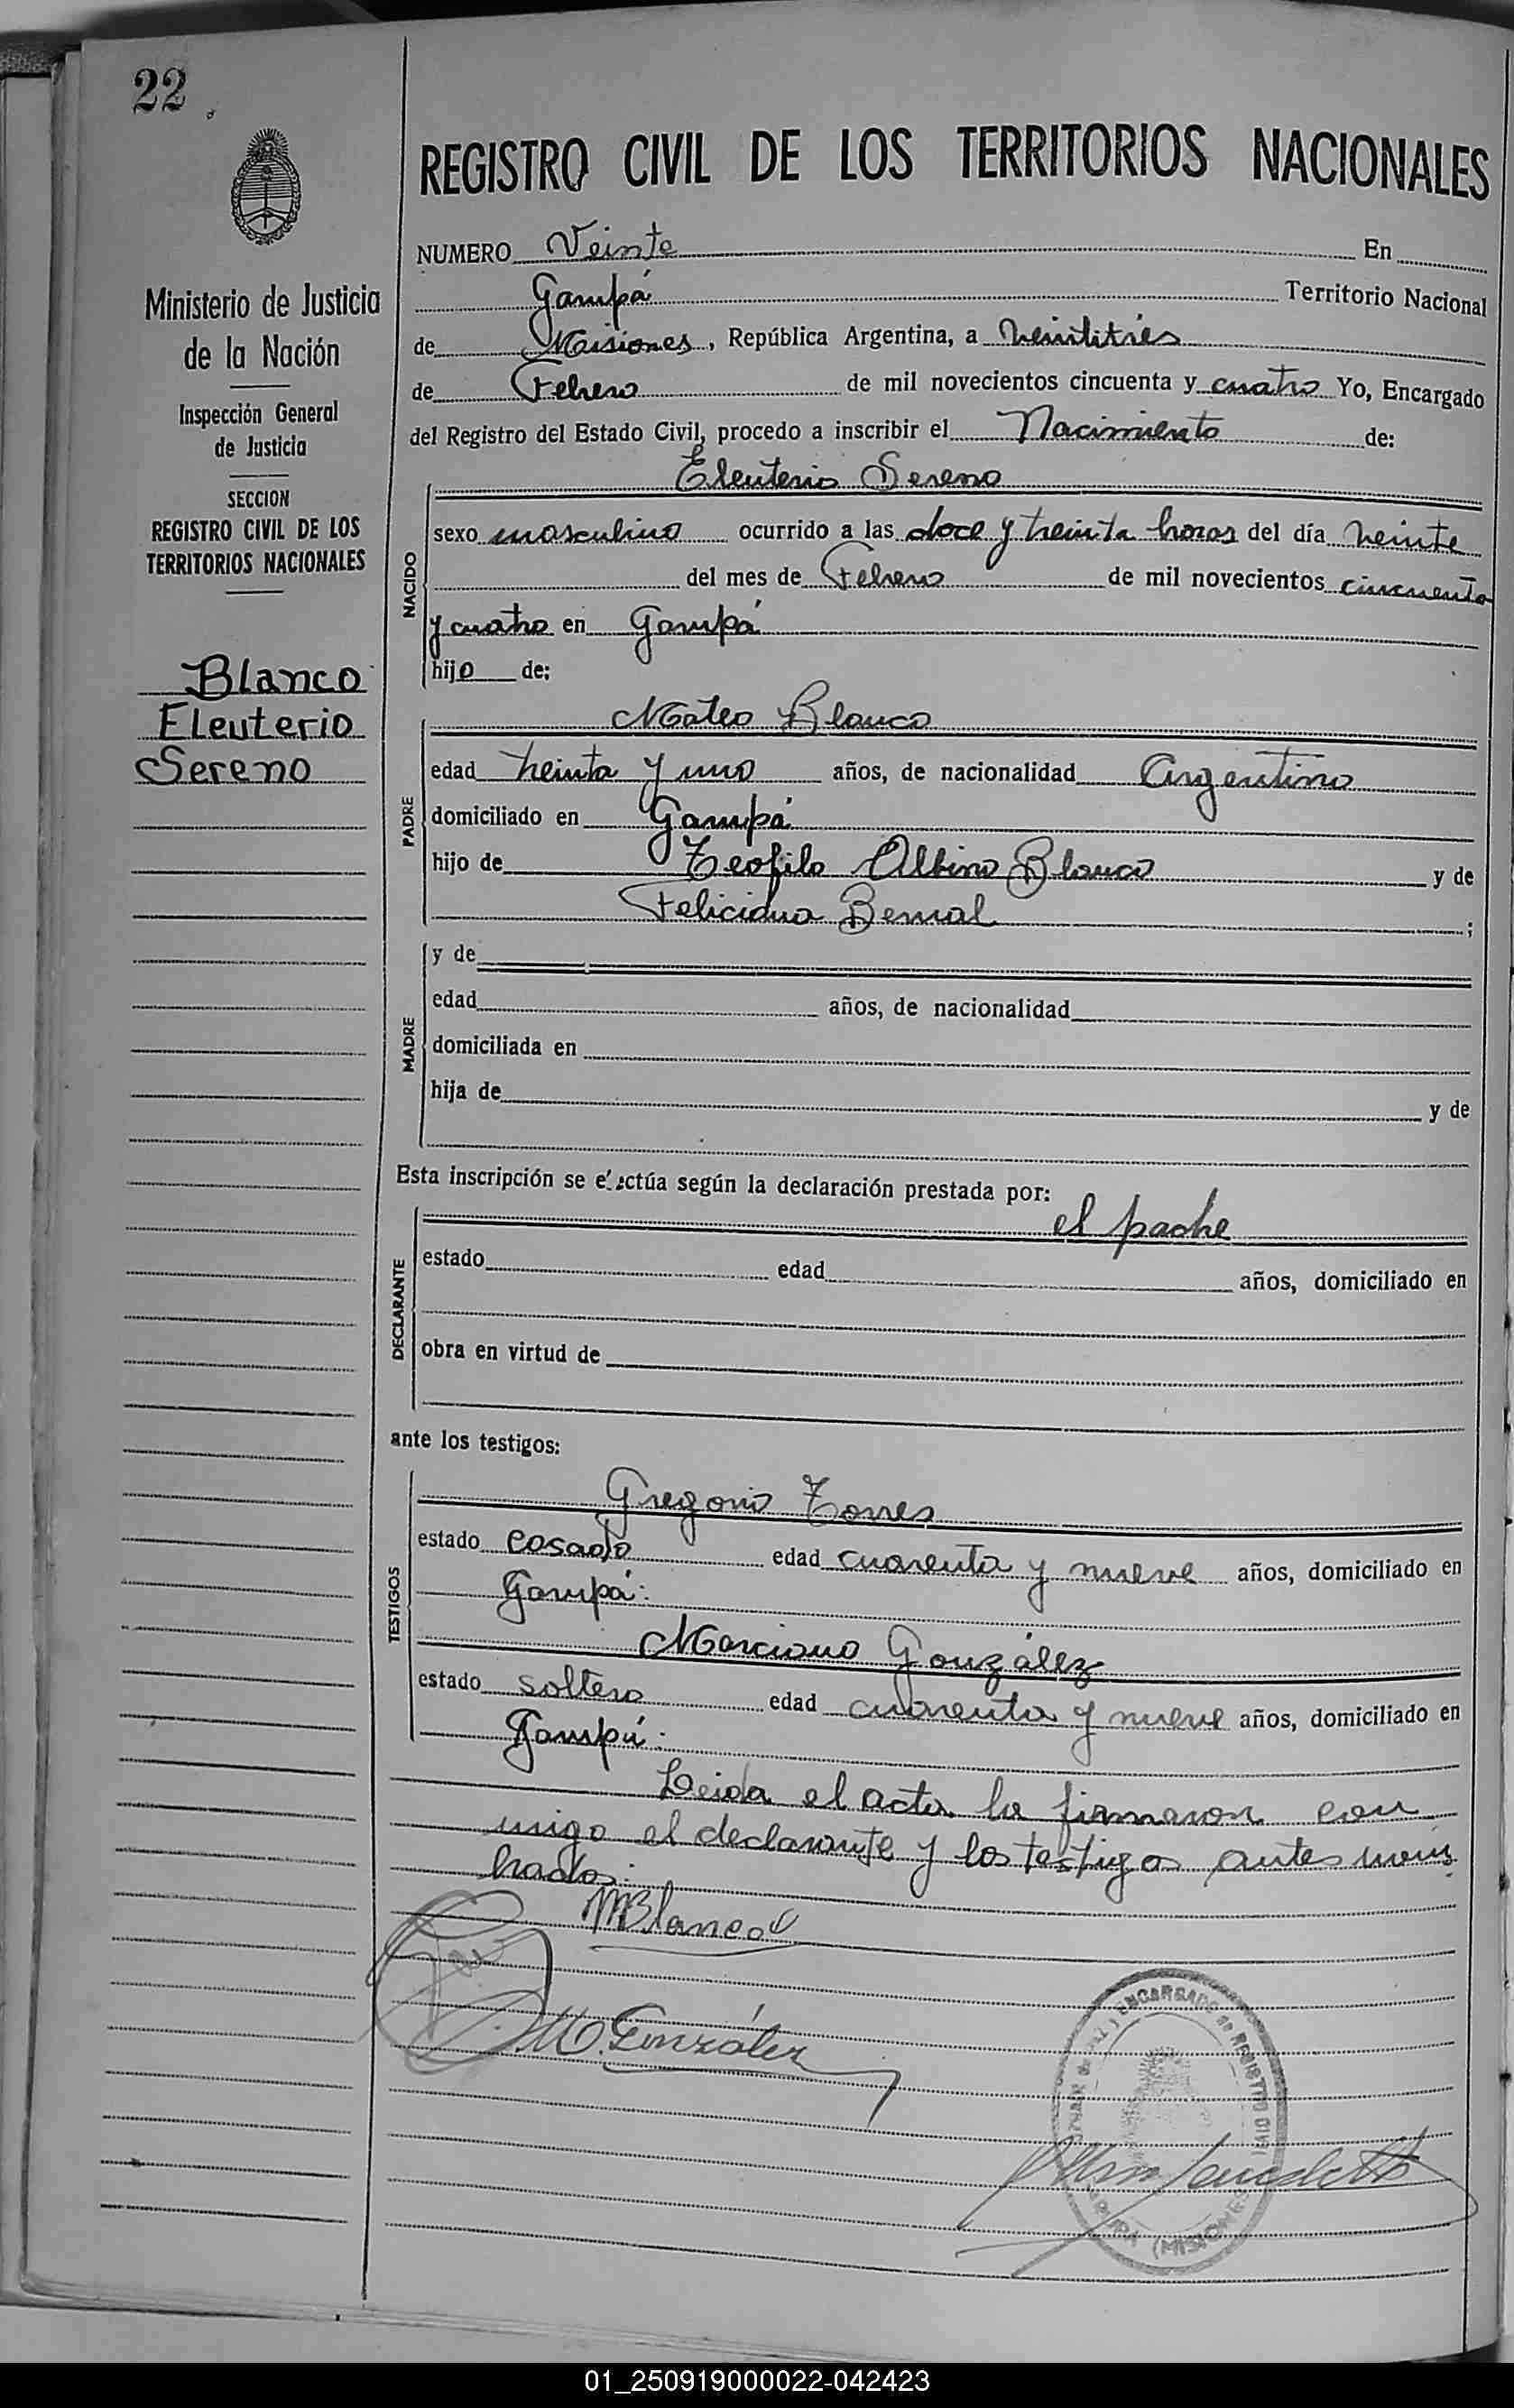 22
REGISTRO CIVIL DE LOS TERRITORIOS NACIONALES
Ministerio de Justicia
de la Nación
Inspección General
de Justicia
SECCION
REGISTRO CIVIL DE LOS
TERRITORIOS NACIONALES
Blanco
Eleuterio
Sereno
NUMERO Veinte En
Garupá Territorio Nacional
de Misiones, República Argentina, a veintitrés
de Febrero de mil novecientos cincuenta y cuatro Yo, Encargado
del Registro del Estado Civil, procedo a inscribir el Nacimiento de:
NACIDO
Eleuterio Sereno
sexo masculino ocurrido a las doce y treinta horas del día veinte
del mes de Febrero de mil novecientos cincuenta
y cuatro en Garupá
hijo de:
PADRE
Mateo Blanco
edad treinta y uno años, de nacionalidad Argentino
domiciliado en Garupá
hijo de Teofilo Albino Blanco y de
Feliciana Bernal ;
MADRE
y de
edad años, de nacionalidad
domiciliada en
hija de y de
Esta inscripción se efectúa según la declaración prestada por:
DECLARANTE
el padre
estado edad años, domiciliado en
obra en virtud de
ante los testigos:
TESTIGOS
Gregorio Torres
estado casado edad cuarenta y nueve años, domiciliado en
Garupá.
Marciano González
estado soltero edad cuarenta y nueve años, domiciliado en
Garupá.
Leida el acta la firmaron con
migo el declarante y los testigos antes nom
brados.
MBlanco
M. González
ENCARGADO de REGISTRO CIVIL
(MISIONES)
01_250919000022-042423